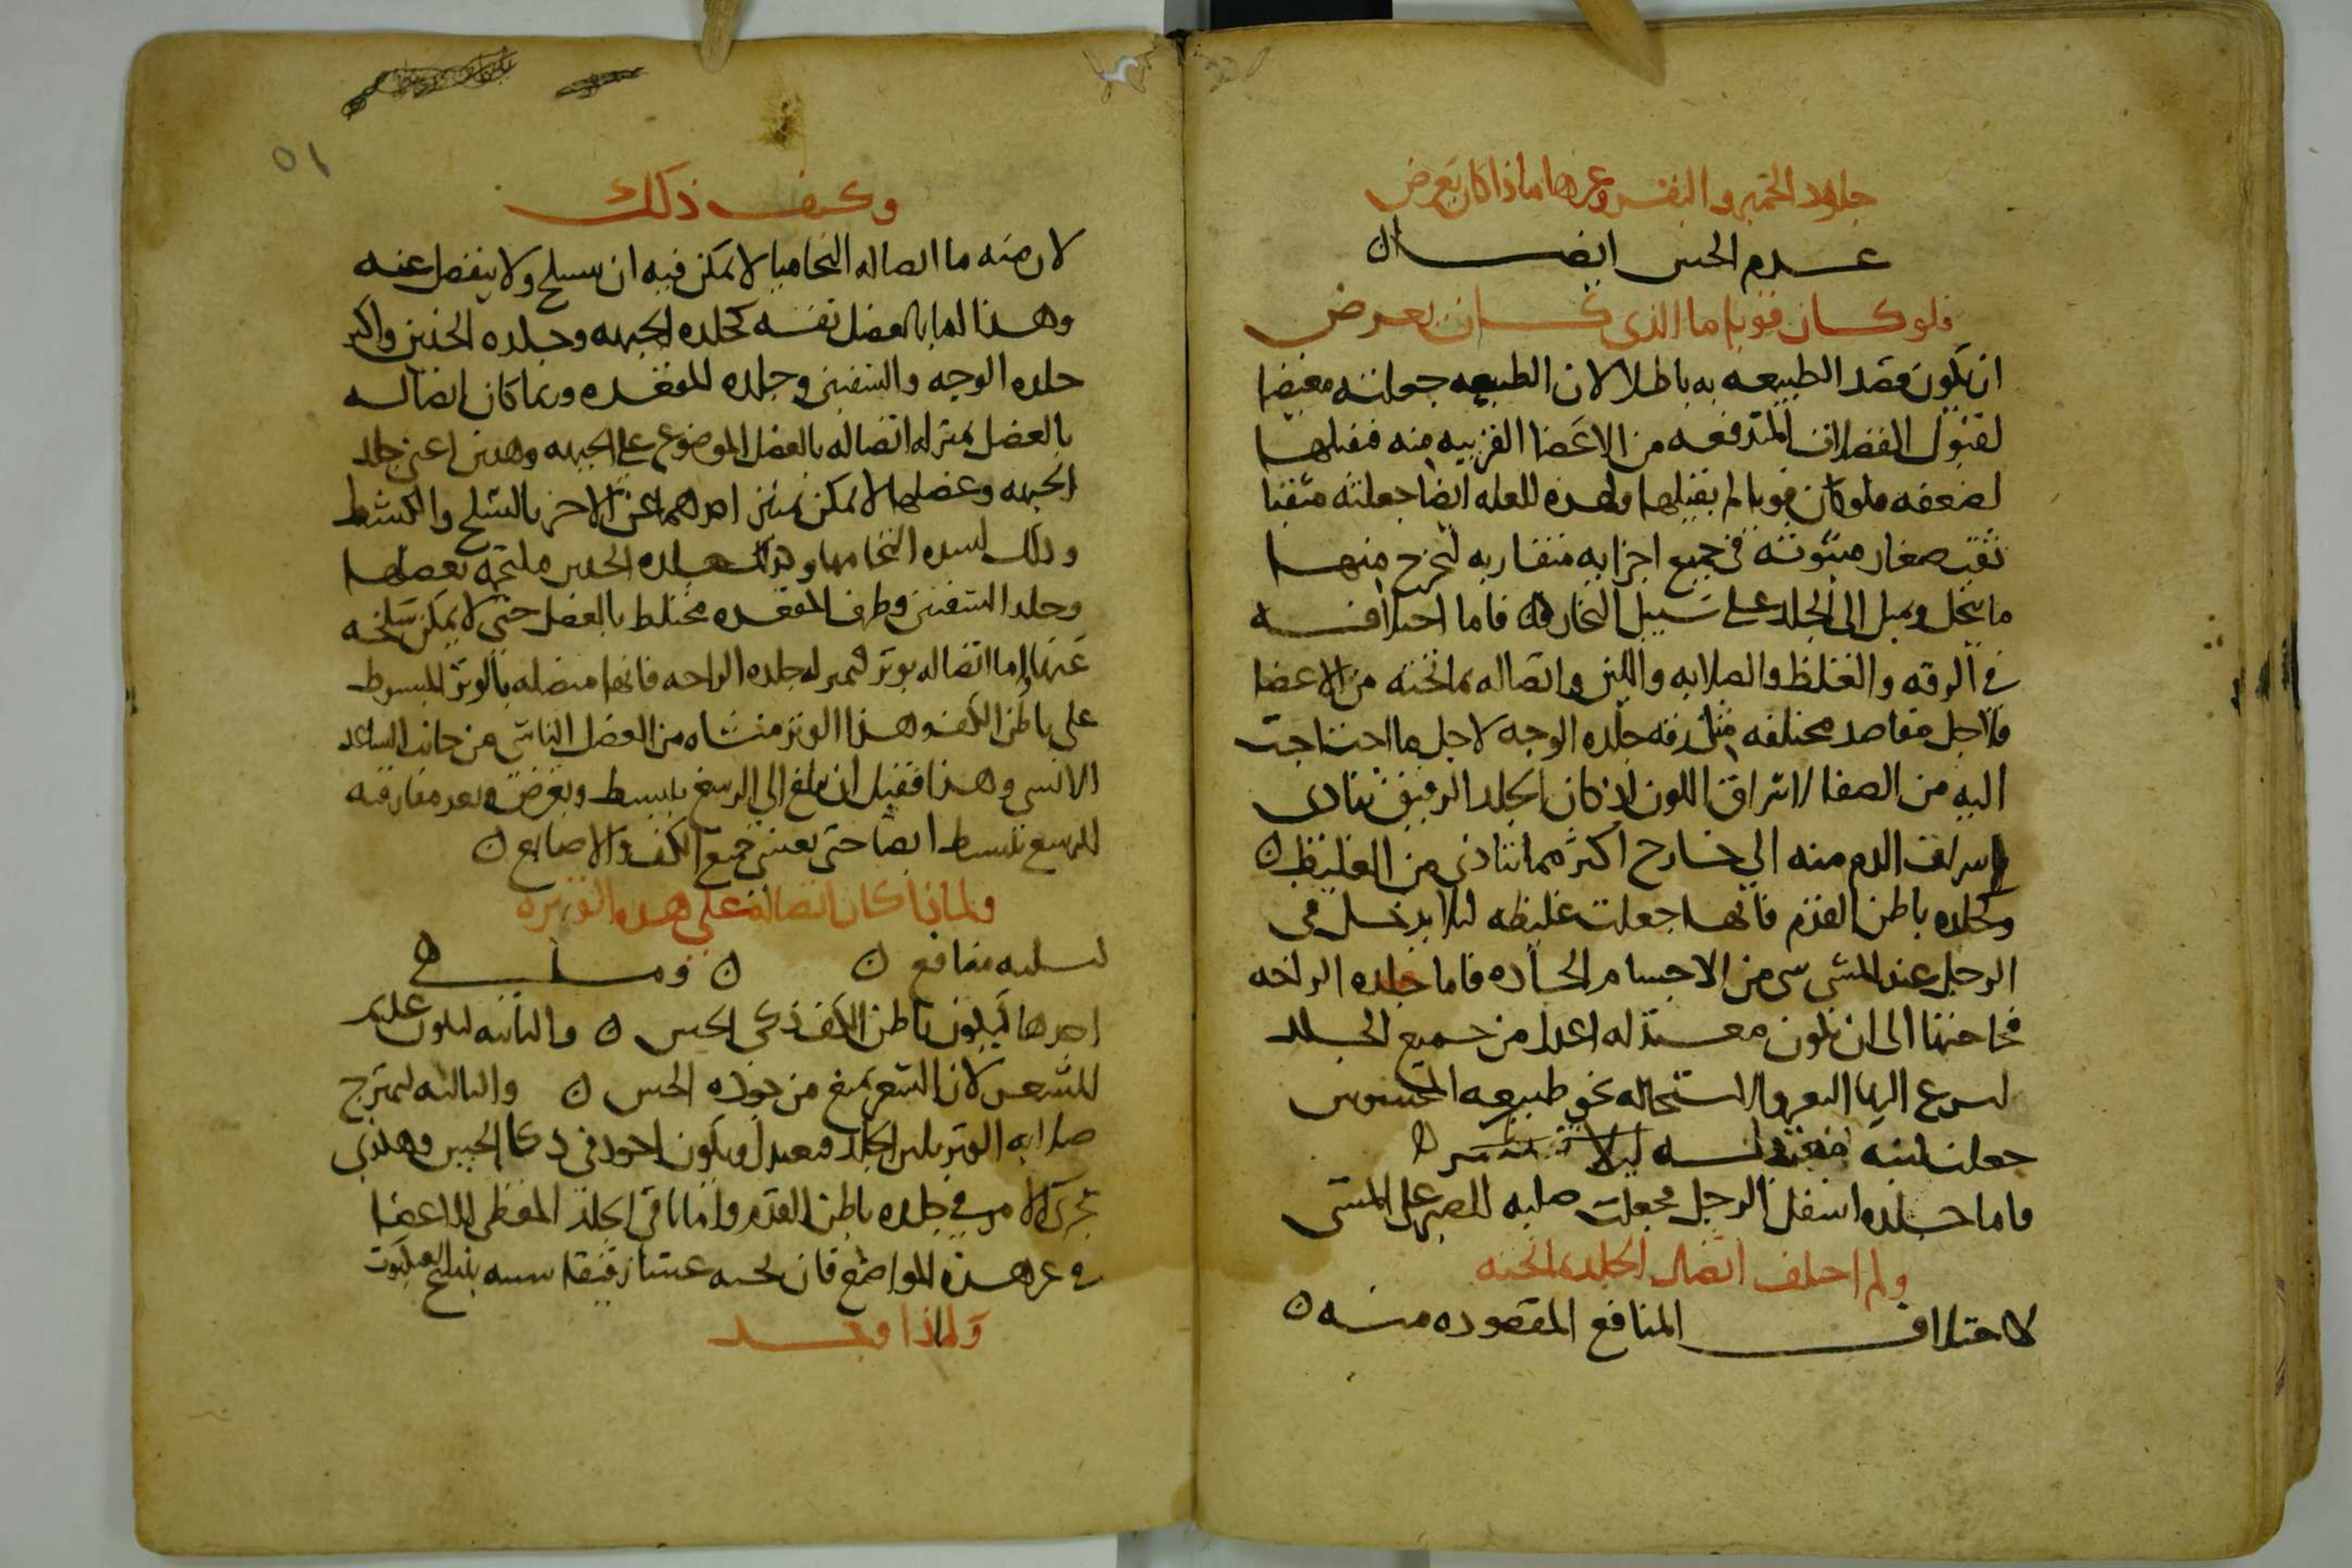 جلود الحمير والبقر وغيرها ماذا كان يعرض
عدم الحس ايضا ن
فلو كان قويا ما الذى كان يعرض
ان يكون قصد الطبيعه به باطلا لان الطبيعه جعلته مغيضا
لقبول الفضلات المتدفعه من الاعضا القريبه منه فقبلها
لضعفه فلو كان قويا لم يقبلها ولهذه العله ايضا جعلته مثقبا
ثقب صغار مبثوثه فى جميع اجزايه متقاربه لتخرج منها
ما يتحلل ويميل الى الجلد على سبيل البخار فاما اختلافه
فى الرقه والغلظ والصلابه واللين واتصاله بما تحته من الاعضا
فلاجل مقاصد مختلفه مثل رقه جلده الوجه لاجل ما احتاجت
اليه من الصفا اشراق اللون اذ كان الجلد الرقيق يتادى
الدم منه الى خارج اكثر مما يتادى من الغليظ ن
وكجلده باطن القدم فانها جعلت غليظه ليلا يدخل فى
الرجل عند المشى شى من الاجسام الحاده فاما جلده الراحه
فحاجتنا الى ان تكون معتدله اعدل من جميع الجلد
ليسرع اليها التغير والاستحاله نحو طبيعه المحسوس
جعلت لينه ليلا
فاما جلده اسفل الرجل فجعلت صلبه للصبر على المشى
ولم اختلف اتصال الجلد بما تحته
لاختلاف المنافع المقصوده منه ن
وكيف ذلك
لان منه ما اتصاله التحاميا لا يمكن فيه ان يسلخ ولا ينفصل عنه
وهذا اما بالعضل نفسه كجلده الجبهه وجلده الخدين واكثر
جلده الوجه والشفتين وجلده المقعده وربما كان اتصاله
بالعضل بمنزله اتصاله بالعضل الموضوع على الجبهه وهذين اعنى جلد
الجبهه وعضلها لا يمكن تميز احدهما عن الاخر بالسلخ والكشط
وذلك لشده التحامها وكذلك جلده الخدين ملتحمه بعضلها
وجلد الشفتين وطرف المقعده مختلط بالعضل حتى لا يمكن سلخه
عنها واما اتصاله بوتر بمنزله جلده الراحه فانها متصله بالوتر المبسوط
على باطن الكف وهذا الوتر منشاه من العضل الناشى من جانب الساعد
الانسى وهذا فقبل ان يبلغ الى الرسغ ينبسط ويعرض وبعد مفارقته
الرسغ ينبسط ايضا حتى يغشى جميع الكف والاصابع ن
ولماذا كان اتصاله على هذه الوتيره
لثلثه منافع ن ن وما هى
احدها ليكون باطن الكف ذكى الحس ن والثانيه ليكون عديم
الشعر لان الشعر يمنع من جوده الحس ن والثالثه ليمتزج
صلابه الوتر بلين الجلد فيعتدل ويكون اجود فى ذكا الحس وهكذى
يجرى الامر فى جلده باطن القدم واما باقى الجلد المغطى للاعضا
فى غير هذه المواضع فان تحته غشا رقيقا شبيه بنسج العنكبوت
ولماذا وجد